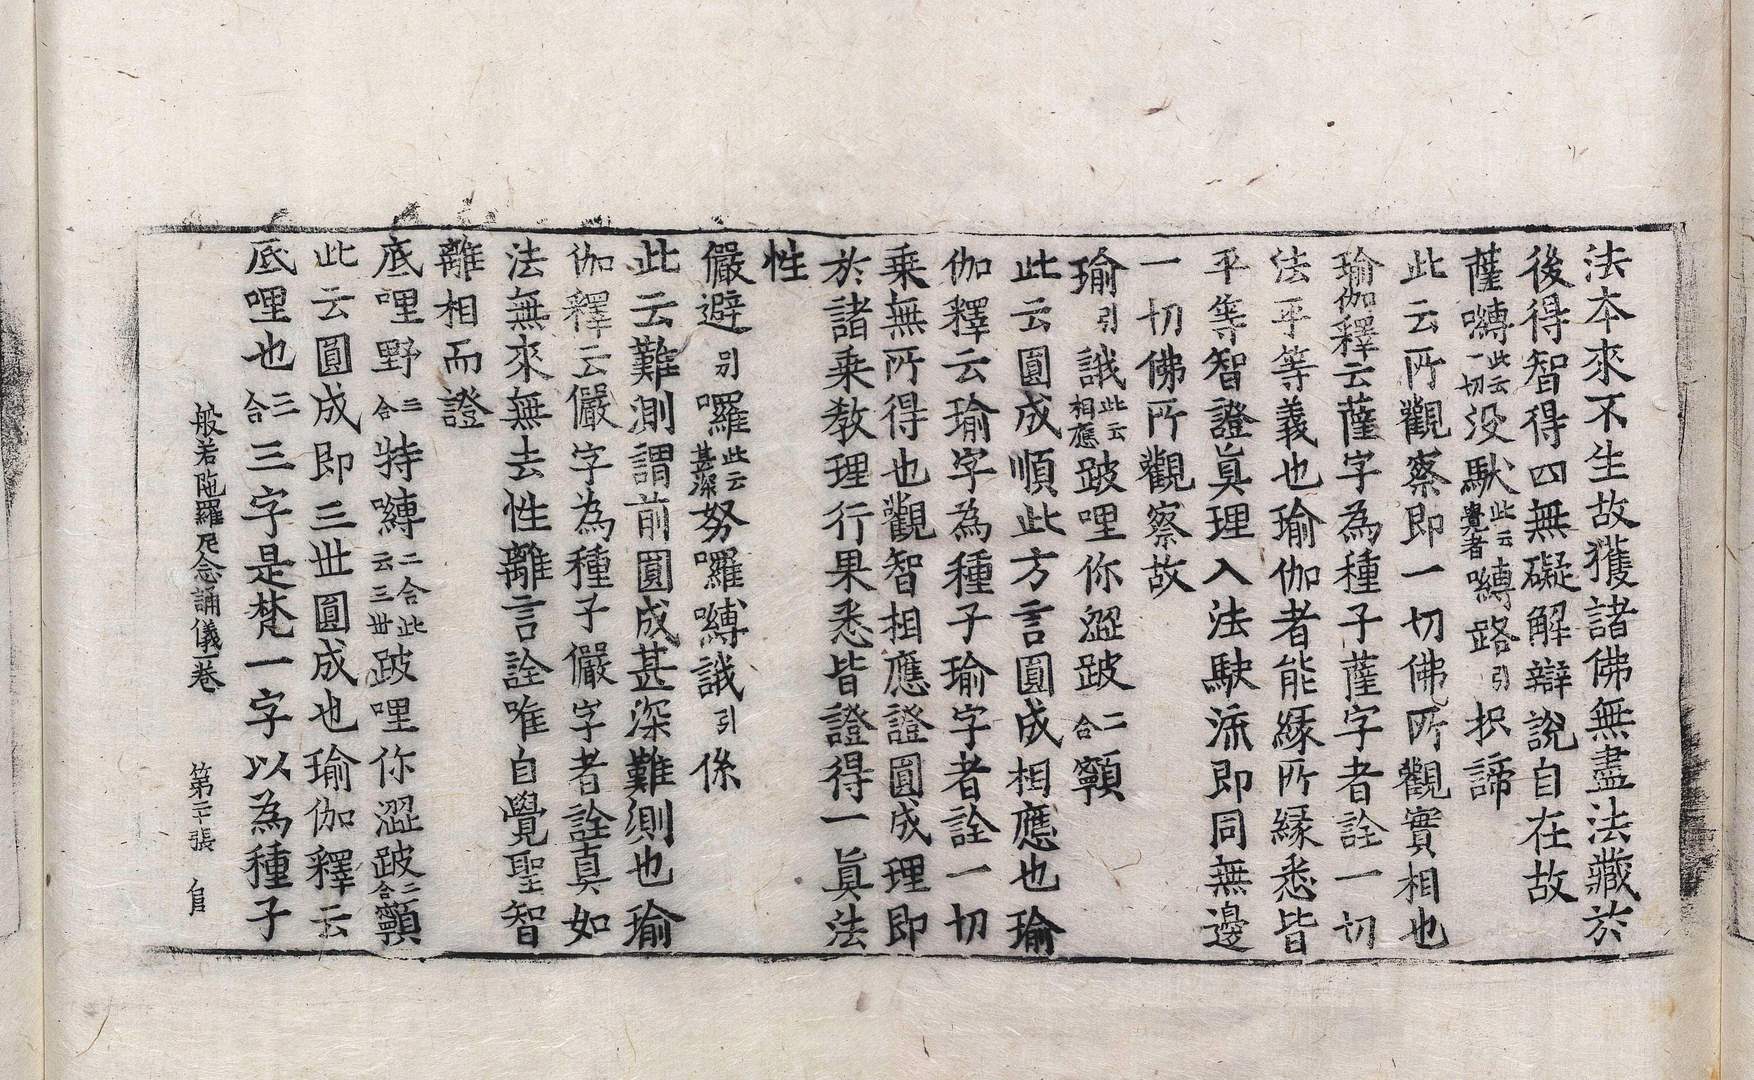 法本來不生故獲諸佛無盡法藏於
後得智得四無礙解辯說自在故
薩嚩此云一切没馱此云覺者嚩路引枳諦
此云所觀察即一切佛所觀實相也
瑜伽釋云薩字為種子薩字者詮一切
法平等義也瑜伽者能緣所緣悉皆
平等智證真理入法駛流即同無邊
一切佛所觀察故
瑜引誐此云相應跛哩你澀跛二合顐
此云圓成順此方言圓成相應也瑜
伽釋云瑜字為種子瑜字者詮一切
乘無所得也觀智相應證圓成理即
於諸乘教理行果悉皆證得一真法
性
儼避引囉此云甚深努囉嚩誐引係
此云難測謂前圓成甚深難測也瑜
伽釋云儼字為種子儼字者詮真如
法無來無去性離言詮唯自覺聖智
離相而證
底哩野三合特嚩二合此云三世跛哩你澀跛二合顐
此云圓成即三世圓成也瑜伽釋云
底哩也三合三字是梵一字以為種子
般若陁羅尼念誦儀卷 第二十張 自